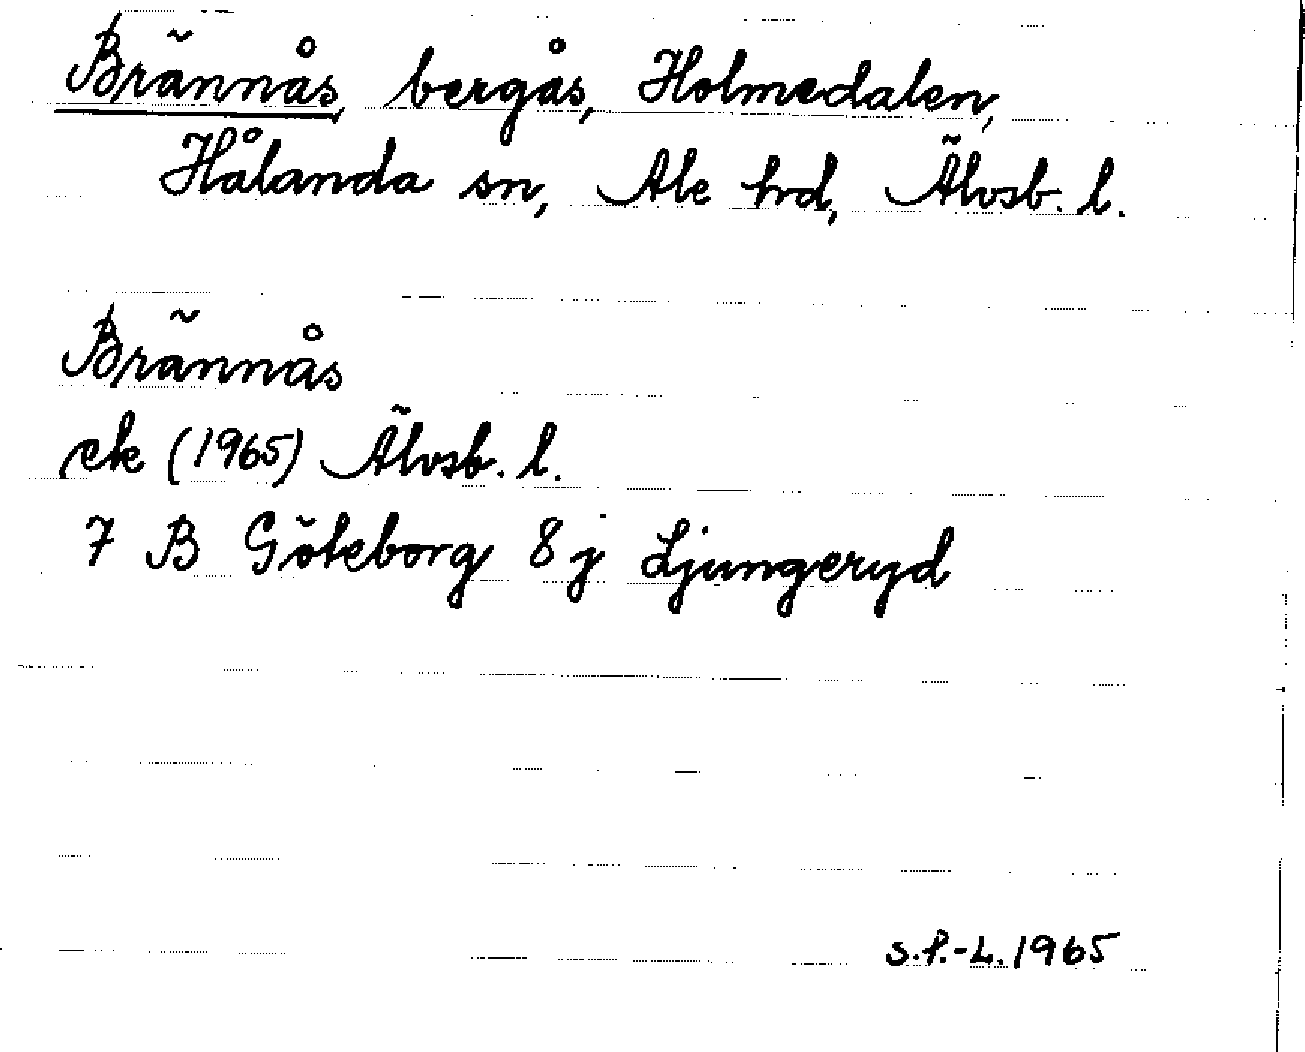 Brännås, bergås, Holmedalen,
Hålanda sn, Ale hrd, Älvsb. l.
Brännås
ek (1965) Älvsb. l.
7 B Göteborg 8 j Ljungeryd
S.P.-L. 1965